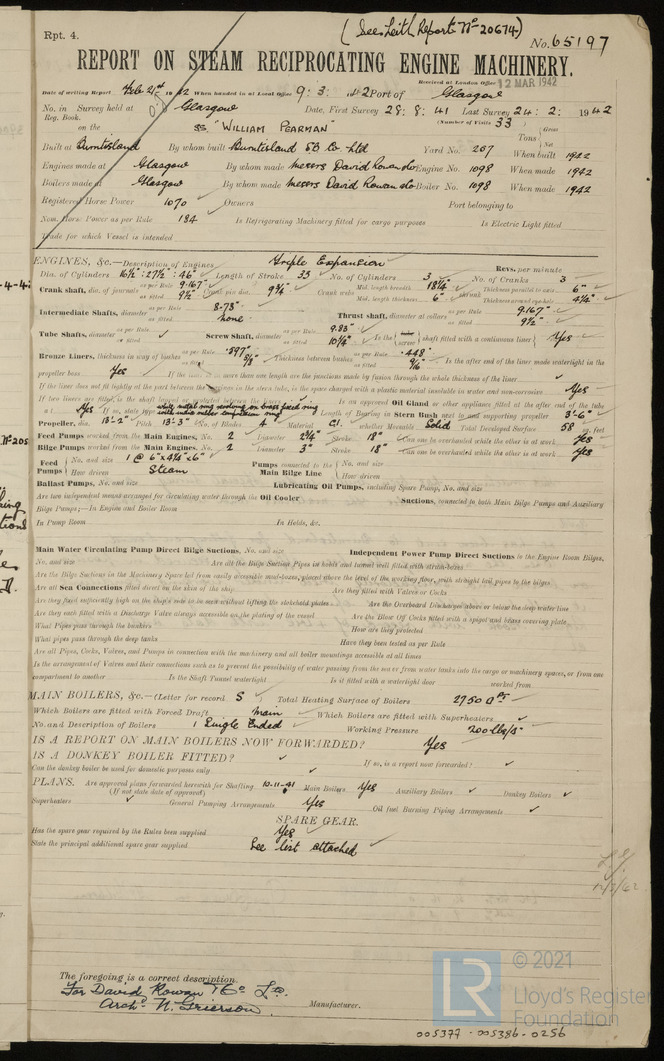 Rpt. 4.
(See Leith Report Nº 20674)
No. 65197
REPORT ON STEAM RECIPROCATING ENGINE MACHINERY.
Received at London Office 12 MAR 1942
Date of writing Report Feb 21st 1942 When handed in at Local Office 9 : 3 : 42 Port of Glasgow
No. in Reg. Book. Survey held at Glasgow Date, First Survey 28 : 8 : 41 Last Survey 24 : 2 : 1942
(Number of Visits 33
on the SS "WILLIAM PEARMAN" Tons Gross Net
Built at Burntisland By whom built Burntisland SB Co Ltd Yard No. 257 When built 1942
Engines made at Glasgow By whom made Messrs David Rowan & Co Engine No. 1098 When made 1942
Boilers made at Glasgow By whom made Messrs David Rowan & Co Boiler No. 1098 When made 1942
Registered Horse Power 1070 Owners Port belonging to
Nom. Horse Power as per Rule 184 Is Refrigerating Machinery fitted for cargo purposes Is Electric Light fitted
Trade for which Vessel is intended
ENGINES, &c.—Description of Engines Triple Expansion
Revs. per minute
Dia. of Cylinders 16½" : 27½" : 46" Length of Stroke 33 No. of Cylinders 3 No. of Cranks 3
Crank shaft, dia. of journals as per Rule 9.167" as fitted 9½" Crank pin dia. 9¾" Crank webs Mid. length breadth 18¼" Mid. length thickness 6" shrunk Thickness parallel to axis 6" Thickness around eye-hole 4¼"
Intermediate Shafts, diameter as per Rule 8.73" as fitted none Thrust shaft, diameter at collars as per Rule 9.167" as fitted 9½"
Tube Shafts, diameter as per Rule as fitted Screw Shaft, diameter as per Rule 9.83" as fitted 10⅜" Is the tube screw shaft fitted with a continuous liner Yes
Bronze Liners, thickness in way of bushes as per Rule .597" as fitted ⅝" Thickness between bushes as per Rule .448" as fitted 9/16" Is the after end of the liner made watertight in the
propeller boss Yes If the liner is in more than one length are the junctions made by fusion through the whole thickness of the liner
If the liner does not fit tightly at the part between the bearings in the stern tube, is the space charged with a plastic material insoluble in water and non-corrosive Yes
If two liners are fitted, is the shaft lapped or protected between the liners Is an approved Oil Gland or other appliance fitted at the after end of the tube
Yes If so, state type white metal ring working on brass fixed ring with india rubber compression ring Length of Bearing in Stern Bush next to and supporting propeller 3'-6"
Propeller, dia. 13'-2" Pitch 13'-3" No. of Blades 4 Material C.I. whether Moveable Solid Total Developed Surface 58 sq. feet
Feed Pumps worked from the Main Engines, No. 2 Diameter 2¾" Stroke 18" Can one be overhauled while the other is at work Yes
Bilge Pumps worked from the Main Engines, No. 2 Diameter 3" Stroke 18" Can one be overhauled while the other is at work Yes
Feed Pumps No. and size 1 @ 6" x 4¼" x 6" Pumps connected to the Main Bilge Line No. and size
How driven Steam How driven
Ballast Pumps, No. and size Lubricating Oil Pumps, including Spare Pump, No. and size
Are two independent means arranged for circulating water through the Oil Cooler Suctions, connected to both Main Bilge Pumps and Auxiliary
Bilge Pumps;—In Engine and Boiler Room
In Pump Room In Holds, &c.
Main Water Circulating Pump Direct Bilge Suctions, No. and size Independent Power Pump Direct Suctions to the Engine Room Bilges,
No. and size Are all the Bilge Suction Pipes in holds and tunnel well fitted with strum-boxes
Are the Bilge Suctions in the Machinery Space led from easily accessible mud-boxes, placed above the level of the working floor, with straight tail pipes to the bilges
Are all Sea Connections fitted direct on the skin of the ship Are they fitted with Valves or Cocks
Are they fixed sufficiently high on the ship's side to be seen without lifting the stokehold plates Are the Overboard Discharges above or below the deep water line
Are they each fitted with a Discharge Valve always accessible on the plating of the vessel Are the Blow Off Cocks fitted with a spigot and brass covering plate
What Pipes pass through the bunkers How are they protected
What pipes pass through the deep tanks Have they been tested as per Rule
Are all Pipes, Cocks, Valves, and Pumps in connection with the machinery and all boiler mountings accessible at all times
Is the arrangement of Valves and their connections such as to prevent the possibility of water passing from the sea or from water tanks into the cargo or machinery spaces, or from one
compartment to another Is the Shaft Tunnel watertight Is it fitted with a watertight door worked from
MAIN BOILERS, &c.—(Letter for record S ) Total Heating Surface of Boilers 2750 □ft
Which Boilers are fitted with Forced Draft Main Which Boilers are fitted with Superheaters
No. and Description of Boilers 1 Single Ended Working Pressure 200 lbs/□"
IS A REPORT ON MAIN BOILERS NOW FORWARDED? Yes
IS A DONKEY BOILER FITTED? If so, is a report now forwarded?
Can the donkey boiler be used for domestic purposes only
PLANS. Are approved plans forwarded herewith for Shafting 10-11-41 Main Boilers Yes Auxiliary Boilers Donkey Boilers
(If not state date of approval)
Superheaters General Pumping Arrangements Yes Oil fuel Burning Piping Arrangements
SPARE GEAR.
Has the spare gear required by the Rules been supplied Yes
State the principal additional spare gear supplied See list attached
The foregoing is a correct description.
For David Rowan & Co Ltd.
Archd. N. Grierson Manufacturer.
© 2021
Lloyd's Register
Foundation
005377-005386-0256